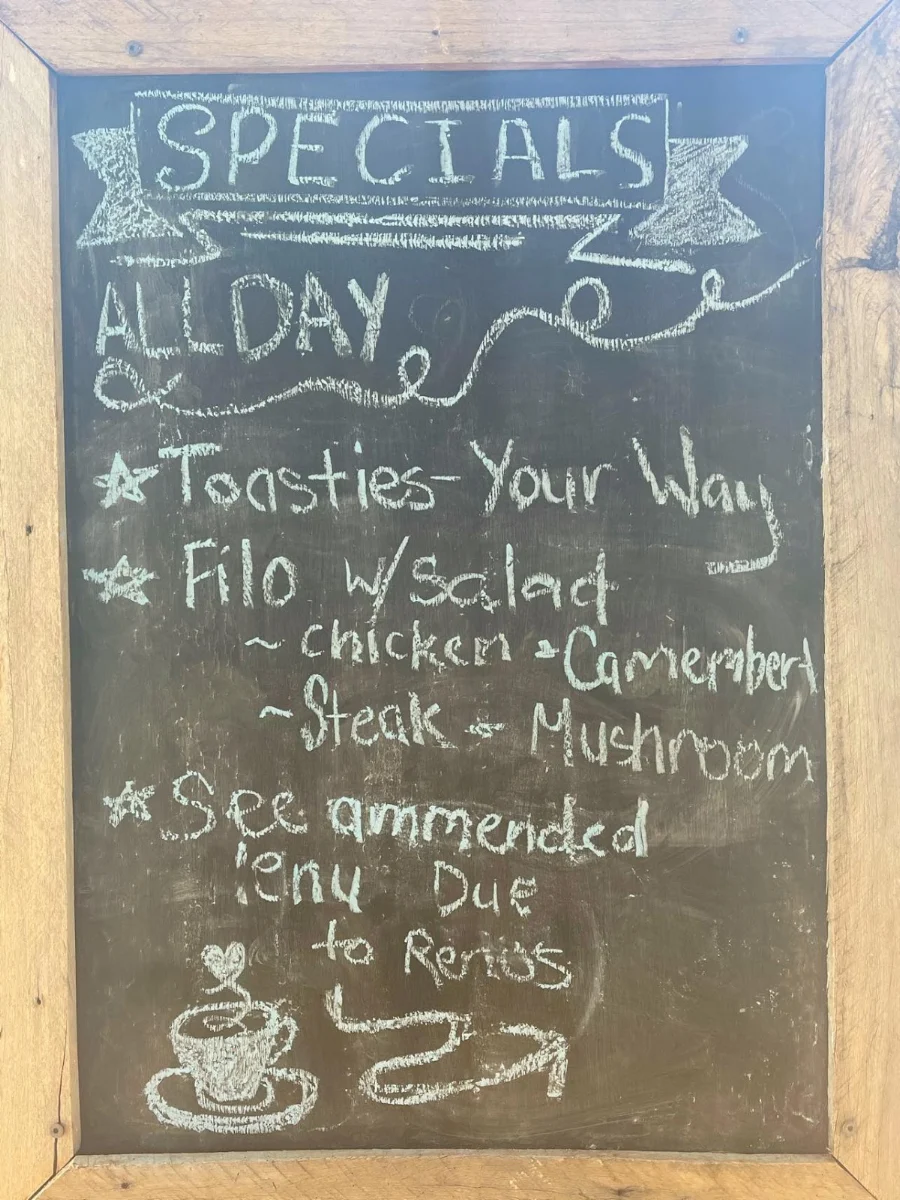 SPECIALS
ALL DAY
Toasties - Your Way
Filo w/ salad
~ chicken + Camembert
~ Steak + Mushroom
See ammended
Menu Due
to Reno's